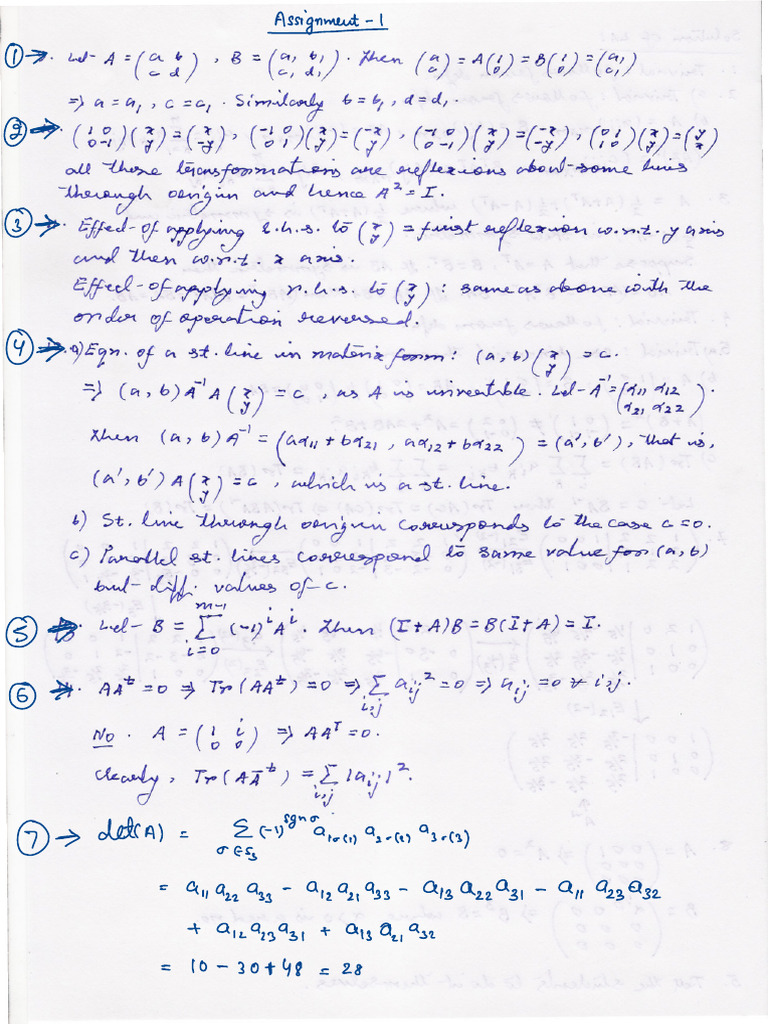 Assignment-1
① → . Let A = (a b / c d) , B = (a₁ b₁ / c₁ d₁) . Then (a / c) = A(1 / 0) = B(1 / 0) = (a₁ / c₁)
=> a = a₁ , c = c₁ . Similarly b = b₁ , d = d₁ .
② → (1 0 / 0 -1)(x / y) = (x / -y) , (-1 0 / 0 1)(x / y) = (-x / y) , (-1 0 / 0 -1)(x / y) = (-x / -y) , (0 1 / 1 0)(x / y) = (y / x)
all these transformations are reflexions about some lines
through origin and hence A² = I .
③ → Effect of applying l.h.s. to (x / y) = first reflexion w.r.t. y axis
and then w.r.t. x axis.
Effect of applying r.h.s. to (x / y) : same as above with the
order of operation reversed.
④ → a) Eqn. of a st. line in matrix form : (a, b)(x / y) = c.
=> (a, b) A⁻¹ A (x / y) = c , as A is invertible. Let A⁻¹ = (α₁₁ α₁₂ / α₂₁ α₂₂) .
Then (a, b) A⁻¹ = (aα₁₁ + bα₂₁ , aα₁₂ + bα₂₂) = (a', b') , that is,
(a', b') A (x / y) = c , which is a st. line.
b) St. line through origin corresponds to the case c = 0.
c) Parallel st. lines correspond to same value for (a, b)
but diff. values of c.
⑤ → Let B = ∑_{i=0}^{m-1} (-1)ⁱ Aⁱ . Then (I + A)B = B(I + A) = I.
⑥ → . AAᵗ = 0 => Tr(AAᵗ) = 0 => ∑_{i,j} a_{ij}² = 0 => a_{ij} = 0 ∀ i, j.
No . A = (1 i / 0 0) => AAᵀ = 0.
Clearly, Tr(AĀᵗ) = ∑_{i,j} |a_{ij}|² .
⑦ → det(A) = ∑_{σ∈S₃} (-1)^{sgn σ} a_{1σ(1)} a_{2σ(2)} a_{3σ(3)}
= a₁₁ a₂₂ a₃₃ - a₁₂ a₂₁ a₃₃ - a₁₃ a₂₂ a₃₁ - a₁₁ a₂₃ a₃₂
+ a₁₂ a₂₃ a₃₁ + a₁₃ a₂₁ a₃₂
= 10 - 30 + 48 = 28